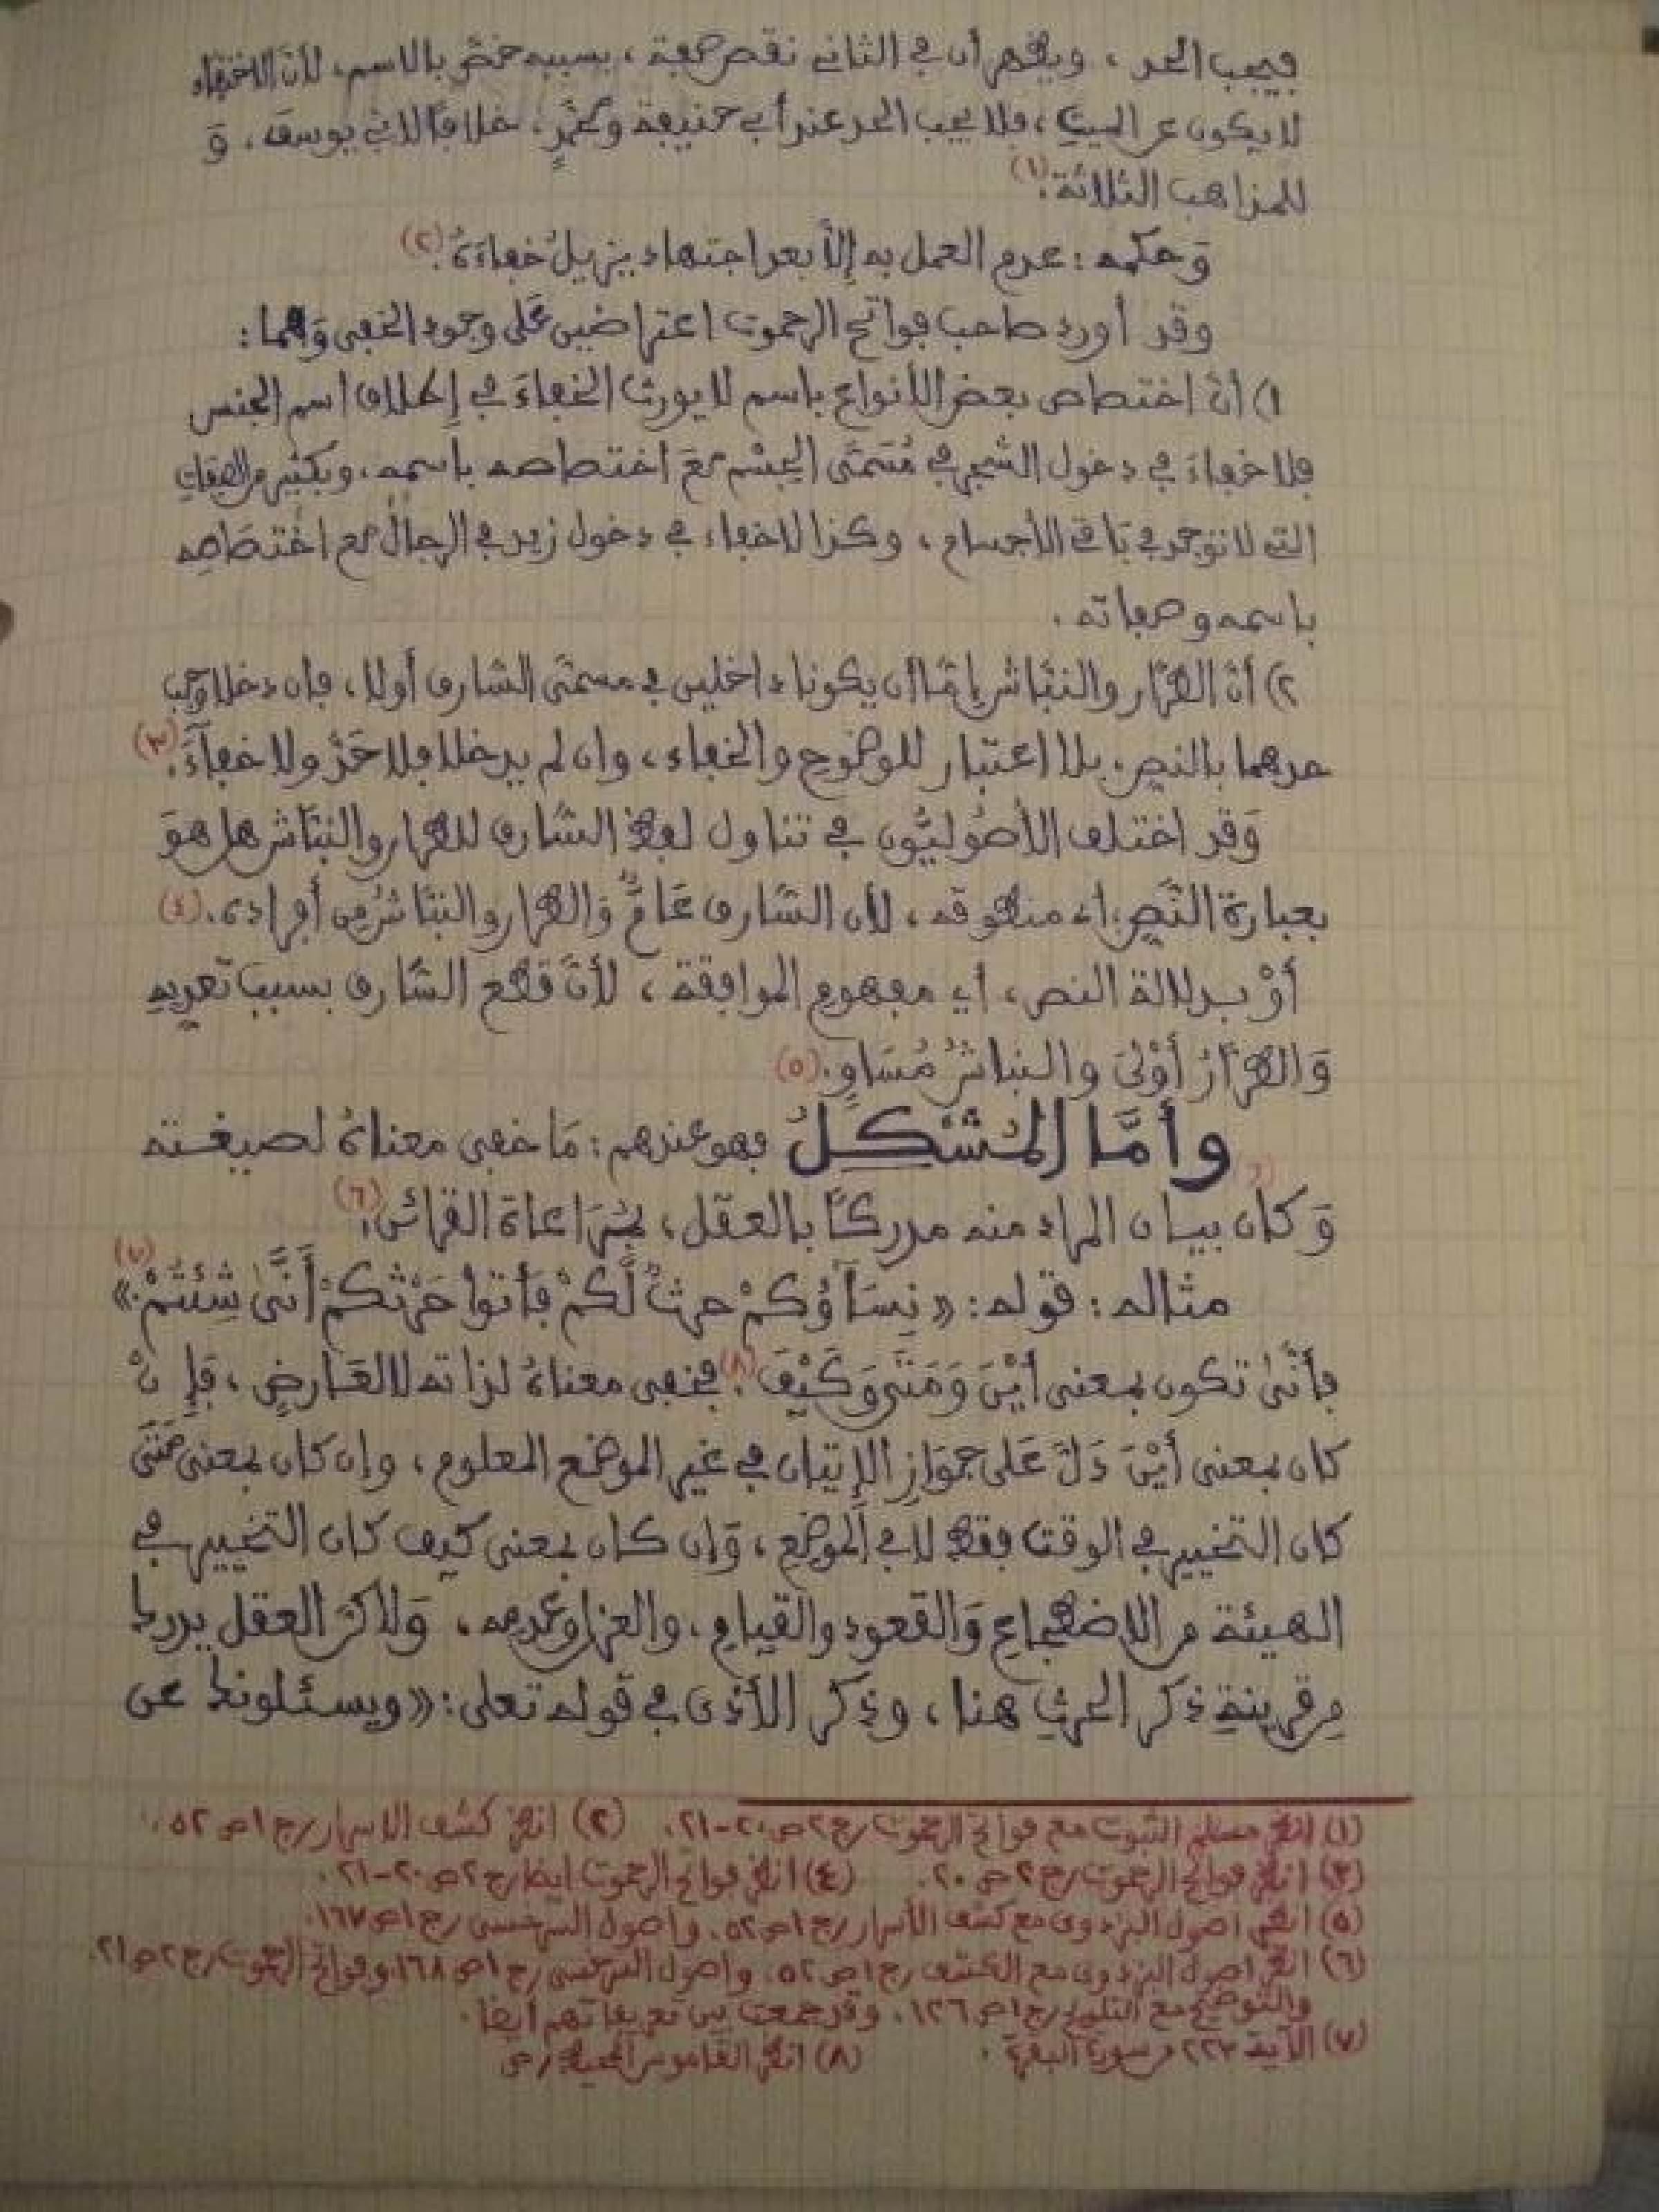 فيجب الحد، ويظهر أن في الثاني نقص صفة، بسببه خص بالاسم، لأن الاختفاء
لا يكون عن الميت، فلا يجب الحد عند أبي حنيفة ومحمّدٍ، خلافًا لأبي يوسف، وَ
للمذاهب الثلاثة. (١)
وَحكمه: عدم العمل به إلاَّ بعد اجتهاد يزيلُ خفاءَهُ. (٢)
وقد أورد صاحب فواتح الرحموت اعتراضين عَلى وجود الخفي وَهما:
١) أنّ اختصاص بعض الأنواع باسم لا يورث الخفاءَ في إطلاق اسم الجنس
فلا خفاءَ في دخول الشجر في مُسَمَّى الجسْم معَ اختصاصه باسمه، وبكثير من الصفات
التي لا توجد في بَاقي الأجسام، وكذا لا خفاء في دخول زيد في الرجال مع اختصَاصِه
باسمه وصفاته.
٢) أنّ الطرّار والنبّاش إمّا أن يكونا داخلين في مسمَّى السّارق أولا، فإن دخلا وجب
حدهما بالنص، بلا اعتبار للوضوح والخفاء، وإن لم يدخلا فلا حَدّ ولا خفآءَ. (٣)
وَقد اختلف الأصُوليُّون في تناول لفظ السّارق للطرار والنبّاش هل هوَ
بعبارة النَّصِ، أي منطوقه، لأن السّارق عَامٌّ وَالطرار والنبّاشُ من أفراده. (٤)
أوْ بدلالة النص، أي مفهوم الموافقة، لأنَّ قطع السّارق بسبب تعديه
وَالطرَّارُ أوْلىَ والنباشُ مُسَاوٍ. (٥)
وأمَّا المُشْكِلُ فهو عندهم: مَا خفي معناهُ لصيغته
وَكان بيان المراد منه مدركًا بالعقل، بمُرَاعاة القرائن. (٦)
مثاله: قوله: «نِسَآؤُكمْ حرثٌ لَّكمْ فَأتواْ حَرْثَكمْ أَنَّىٰ شِئتُمْ.» (٧)
فأنَّىٰ تكون بمعنى أيْنَ وَمَتَى وَكَيْفَ. (٨) فخفي معناهُ لذاته لا لعَارضٍ، فَإِنْ
كان بمعنى أيْنَ دَلَّ عَلى جوَازِ الإتيان في غير الموضع المعلوم، وإن كان بمعنى مَتَى
كان التخيير في الوقت فقط لا في المَوضع، وَإن كان بمعنى كيف كان التخيير في
الهيئة من الاضطجاع وَالقعود والقيام، والعزل وعدمه، وَلاكنّ العقل يدرك
من قرينة ذكر الحرث هنا، وذكر الأذى في قوله تعلى: «ويسئلونك عن
(١) انظر مسلم الثبوت مع فواتح الرحموت / ج ٢ ص ٢٠-٢١. (٢) انظر كشف الاسرار / ج ١ ص ٥٢.
(٣) انظر فواتح الرحموت / ج ٢ ص ٢٠. (٤) انظر فواتح الرحموت ايضا / ج ٢ ص ٢٠-٢١.
(٥) انظر اصول البزدوي مع كشف الأسرار / ج ١ ص ٥٢، واصول السرخسي / ج ١ ص ١٦٧.
(٦) انظر اصول البزدوي مع الكشف / ج ١ ص ٥٢، واصول السرخسي / ج ١ ص ١٦٨، وفواتح الرحموت / ج ٢ ص ٢١.
والتوضيح مع التلويح / ج ١ ص ١٢٦، وقد جمعت بين تعريفاتهم ايضا.
(٧) الآية ٢٢٣ من سورة البقرة. (٨) انظر القاموس المحيط / ص